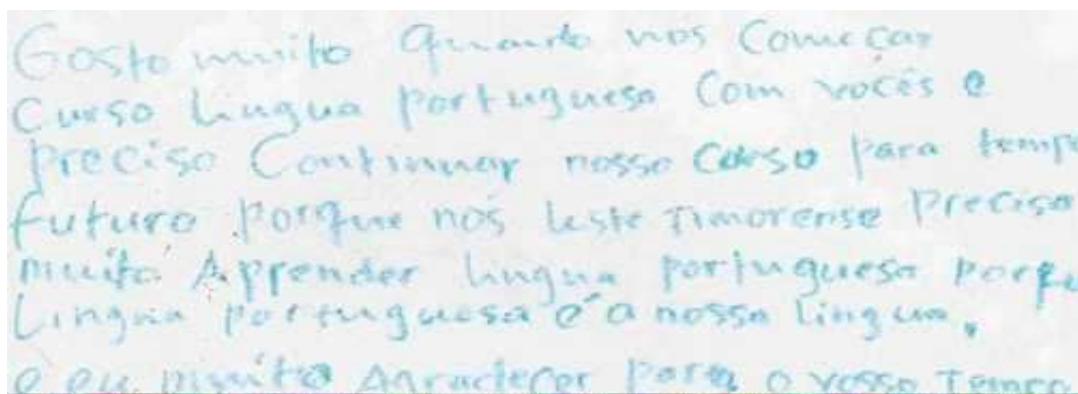 Gosto muito quando nos Começar
Curso Lingua portuguesa Com vocês e
preciso Continuar nosso curso para tempo
futuro porque nós leste Timorense preciso
muito Aprender lingua portuguesa porqu
Lingua portuguesa é a nossa lingua,
e eu muito Agradecer para o vosso Tempo